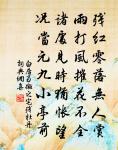 残红零落无人赏
雨打风摧花不全
诸处见时犹怅望
况当元九小亭前
白居易微之宅残牡丹
詩典網奉